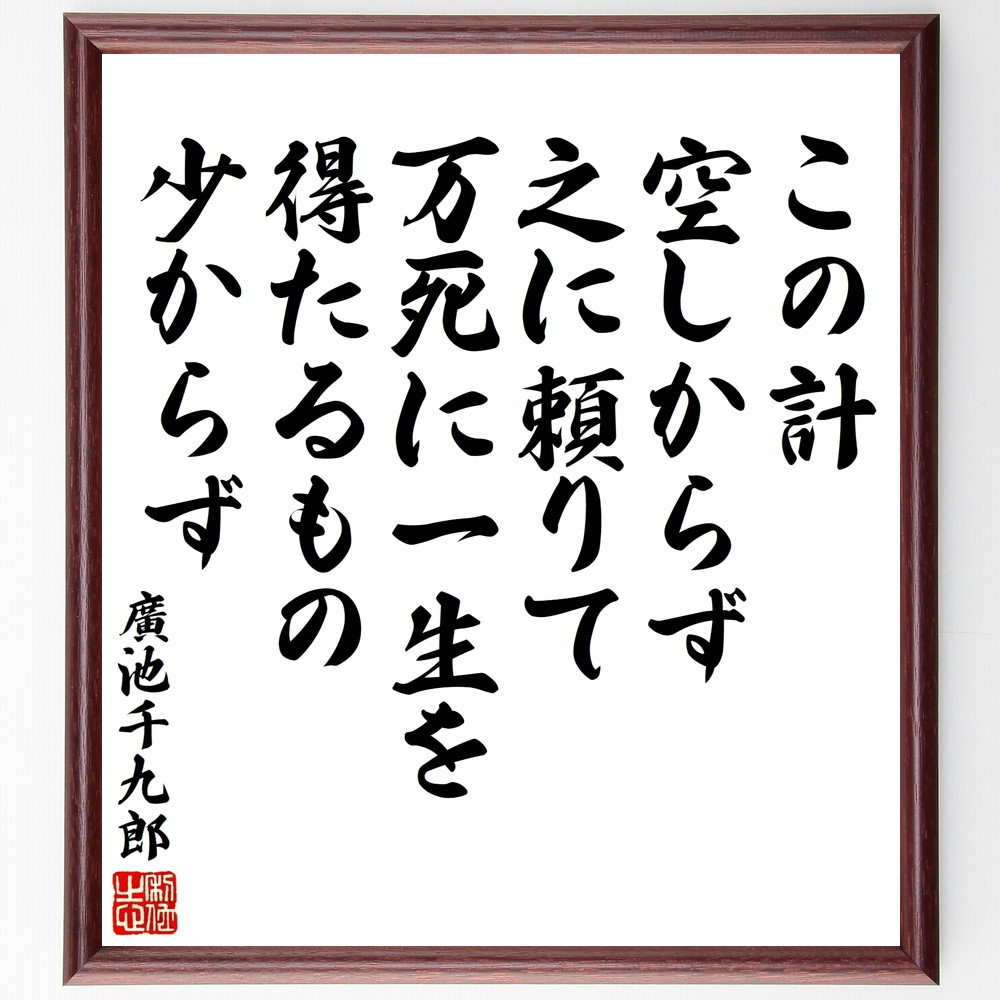 この計
空しからず
之に頼りて
万死に一生を
得たるもの
少からず
廣池千九郎